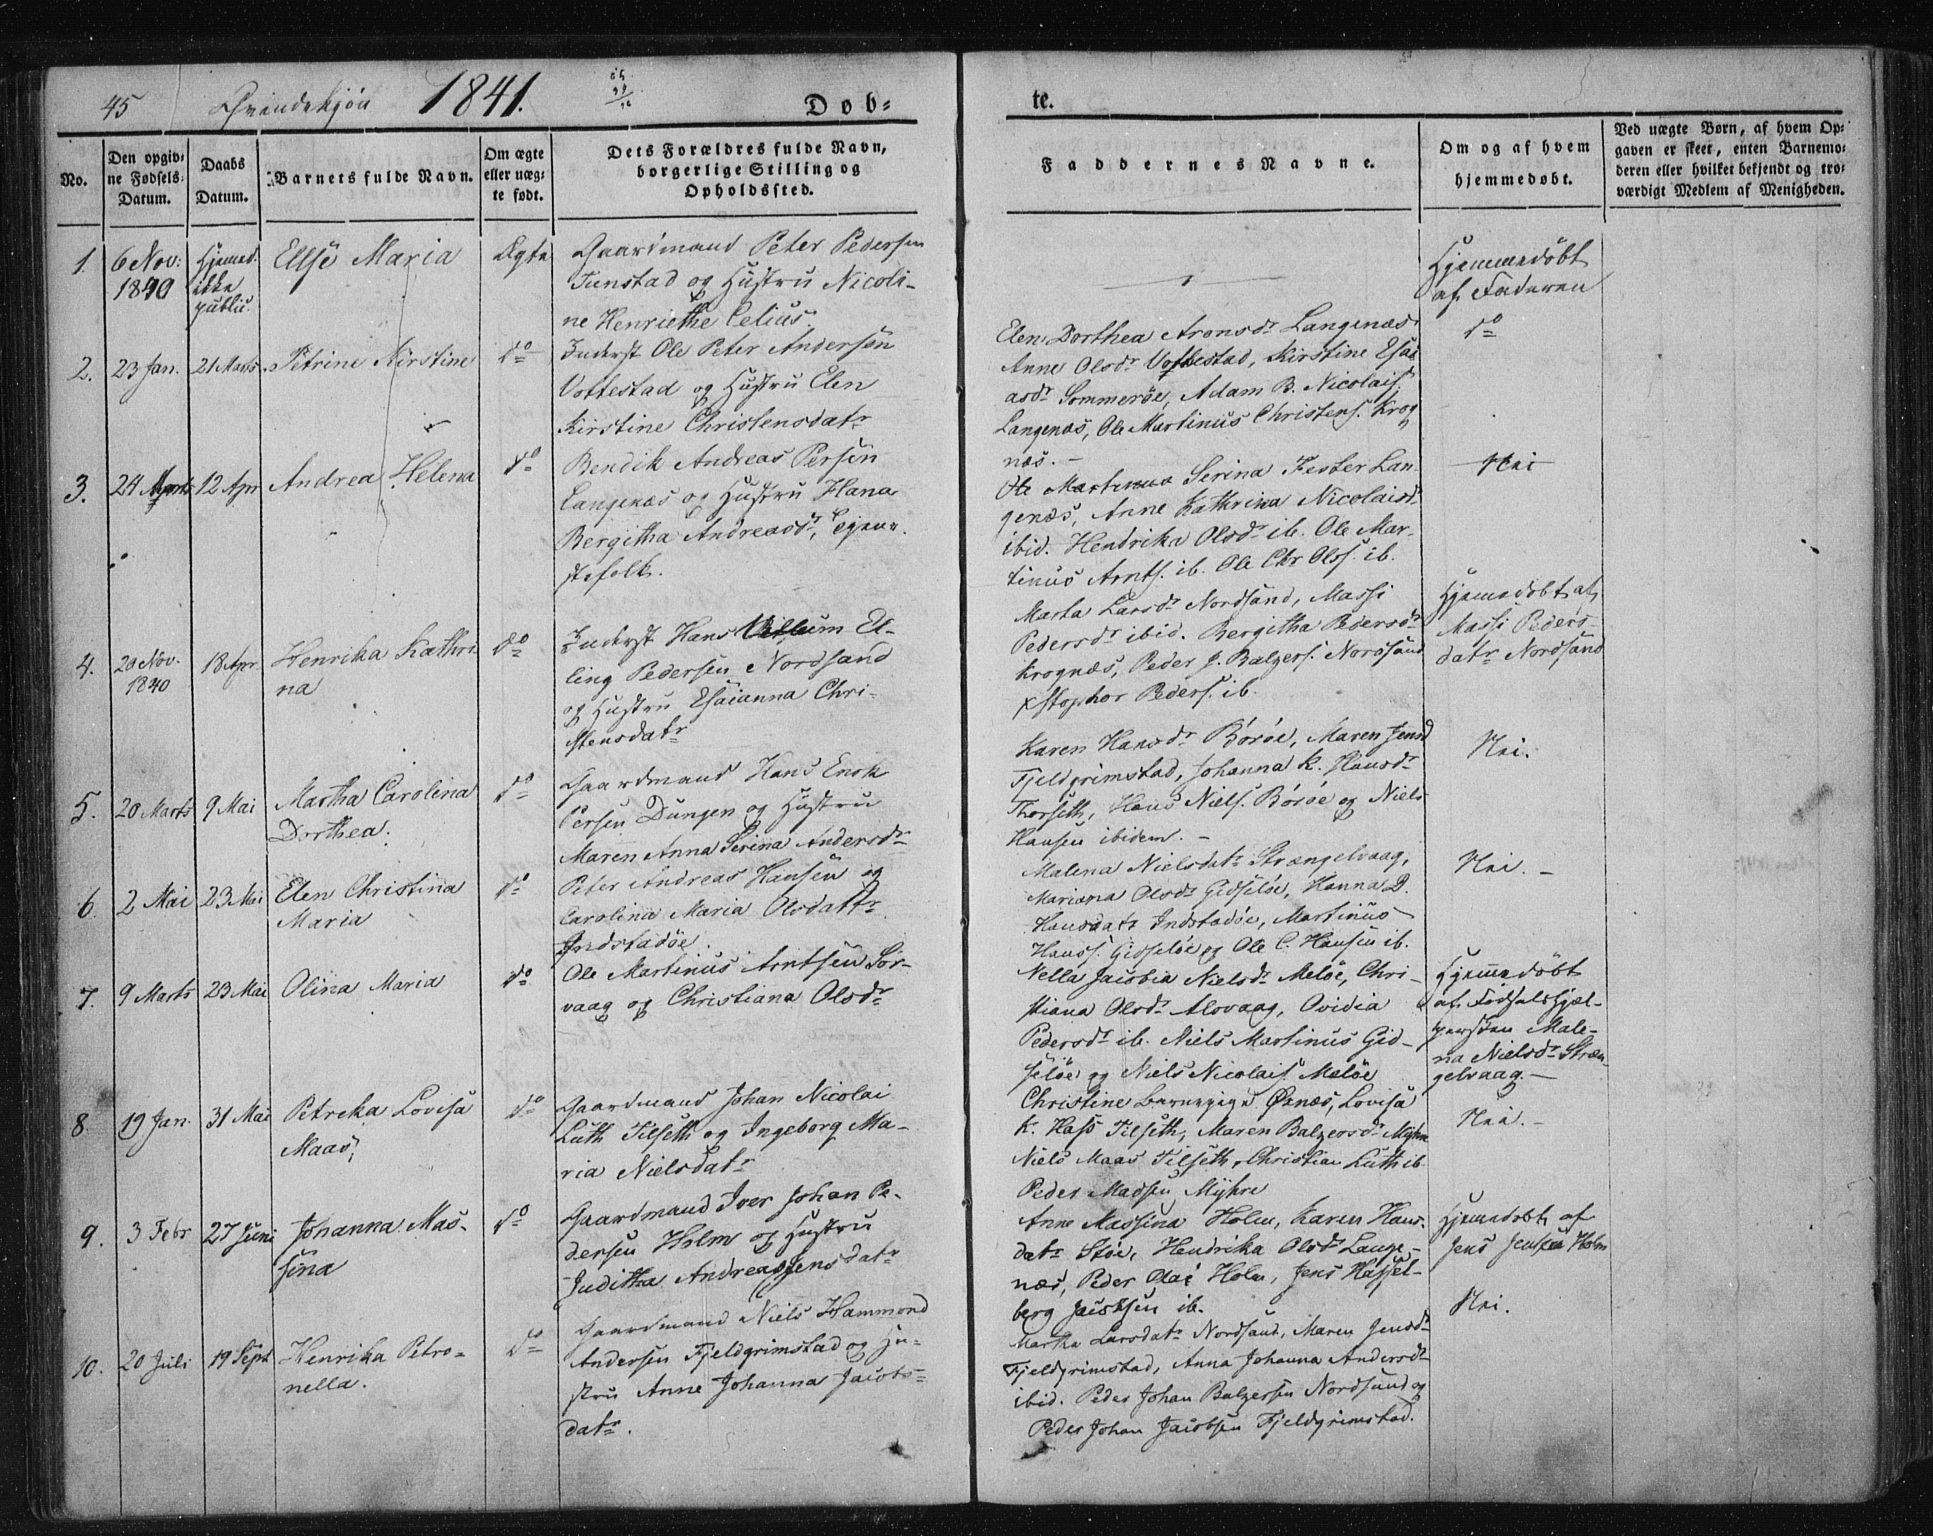 45 Qvindekjön 1841. Dob-
te.
No.
Den opgiv-
ne Fødsels-
Datum.
Daabs
Datum.
Barnets fulde Navn.
Om ægte
eller uæg-
te født.
Dets Forældres fulde Navn,
borgerlige Stilling og
Opholdssted.
Faddernes Navne.
Om og af hvem
hjemmedøbt.
Ved uægte Børn, af hvem Op-
gaven er skeet, enten Barnemo-
deren eller hvilket bekjendt og tro-
værdigt Medlem af Menigheden.
1.
6 Nov:
1840
Hjemed.
ikke
public.
Ellse Maria
Ægte
Gaardmand Peter Pedersen
Tunstad og Hustru Nicoli-
ne Henriethe Celius.
Hjemmedöbt
af Faderen
2.
23 Jan.
21 Marts
Petrine Kirstine
do
Inderst Ole Peter Andersen
Vottestad og Hustru Elen
Kirstine Christensdatr
Elen Dorthea Aronsdr Langenæs
Anne Olsdr Vottestad, Kirstine Esai
asdr Sommeröe, Adam B. Nicolais.
Langenæs, Ole Martinus Christens. Krog
næs. -
do
3.
24
12 Apr
Andrea Helena
do
Bendik Andreas Persen
Langenæs og Hustru Hana
Bergitha Andreasdr, Egten-
skefolk.
Serina Fester Lan-
genæs, Anne Kathrina Nicolaisdr
ibid. Hendrika Olsdr ib. Ole Mar-
tinus Arnts. ib. Ole Chr Ols. ib.
Nei
4.
20 Nov.
1840
18 Apr
Henrika Kathri
na
do
Inderst Hans El-
ling Pedersen Nordsand
og Hustru Esaianna Chri-
stensdatr
Marta Larsdr Nordsand, Massi
Pedersdr ibid. Bergitha Pedersdr
Krognæs, Peder J. Balzers. Nordsand
Xstophor Peders. ib.
Hjemedobt af
Massi Peders-
datr Nordsand
5.
20 Marts
9 Mai
Martha Carolina
Dorthea.
do
Gaardmand Hans Enok
Persen Dungen og Hustru
Maren Anna Serina Andersdr
Karen Hansdr Böröe, Maren Jensd
Fjeldgrimstad, Johanna K. Hansdr
Thorseth, Hans Niels. Böröe og Niels
Hansen ibidem. -
Nei.
6.
2 Mai
23 Mai
Elen Christina
Maria
do
Peter Andreas Hansen og
Carolina Maria Olsdattr
Indstadöe.
Malena Nielsdatr Strængelvaag,
Mariana Olsdr Gidselöe, Hanna D.
Hansdatr Indstadöe, Martinus
Hanss. Gidselöe og Ole C. Hansen ib.
Nei. -
7.
9 Marts
23 Mai
Olina Maria
do
Ole Martinus Arntsen Sör-
vaag og Christiana Olsdr
Nella Jacobia Nielsdr Melöe, Chri-
stiana Olsdr Alovaag, Ovidia
Pedersdr ib. Niels Martinus Gid-
selöe og Niels Nicolais. Melöe
Hjemedöbt
af Födselshjæl-
persken Male-
na Nielsdr Stræn
gelvaag. -
8.
19 Jan.
31 Mai
Petreka Lovisa
Maas,
do
Gaardmand Johan Nicolai
Luth Tilseth og Ingeborg Ma-
ria Nielsdatr
Christine Barnepige Öxnæs, Lovisa
K. Hass Tilseth, Maren Balzersdr Myhre
Niels Maas Tilseth, Christian Luth ib
Peder Madsen Myhre
Nei. -
9.
3 Febr
27 Juni
Johanna Mas-
sina
do
Gaardmand Iver Johan Pe-
dersen Holm og Hustru
Juditha Andrea Jensdatr
Anne Massina Holm, Karen Hans-
datr Stöe, Hendrika Olsdr Lange-
næs, Peder Olai Holm, Jens Hassel-
berg Jacobsen ib.
Hjemedobt af
Jens Jensen Holm
10.
20 Juli
19 Sept
Henrika Petro-
nella.
do
Gaardmand Niels Hammond
Andersen Fjeldgrimstad og Hu-
stru Anne Johanna Jacobs-
datr.
Martha Larsdatr Nordsand, Maren Jensdr
Fjeldgrimstad, Anna Johanna Andersdr
ibid. Peder Johan Balzersen Nordsand og
Peder Johan Jacobsen Fjeldgrimstad.
Nei.